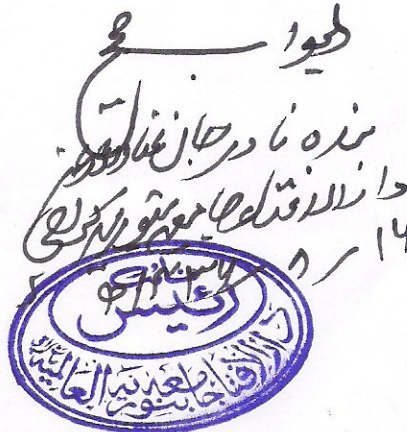 الجواب صحیح
بندہ نادر جان
دارالافتاء جامعہ بنوریہ کراچی
رئیس
دارالافتاء جامعہ بنوریہ العالمیہ